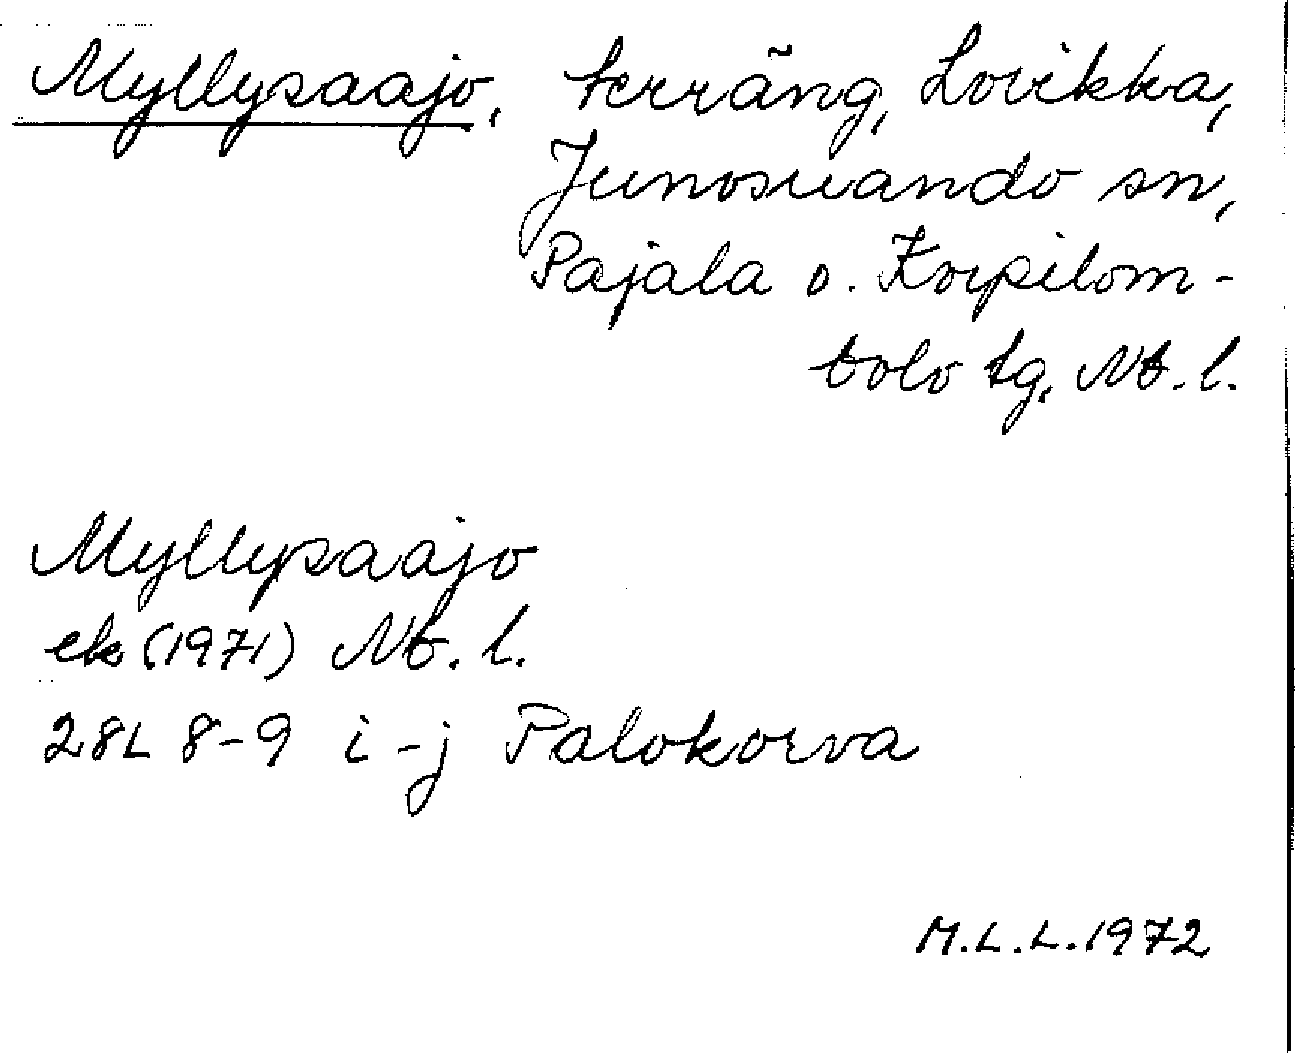 Myllysaajo, terräng, Lovikka,
Junosuando sn,
Pajala o. Korpilom-
bolo tg, Nb. l.
Myllysaajo
ek (1971) Nb. l.
28L 8-9 i-j Palokorva
M.L.L. 1972